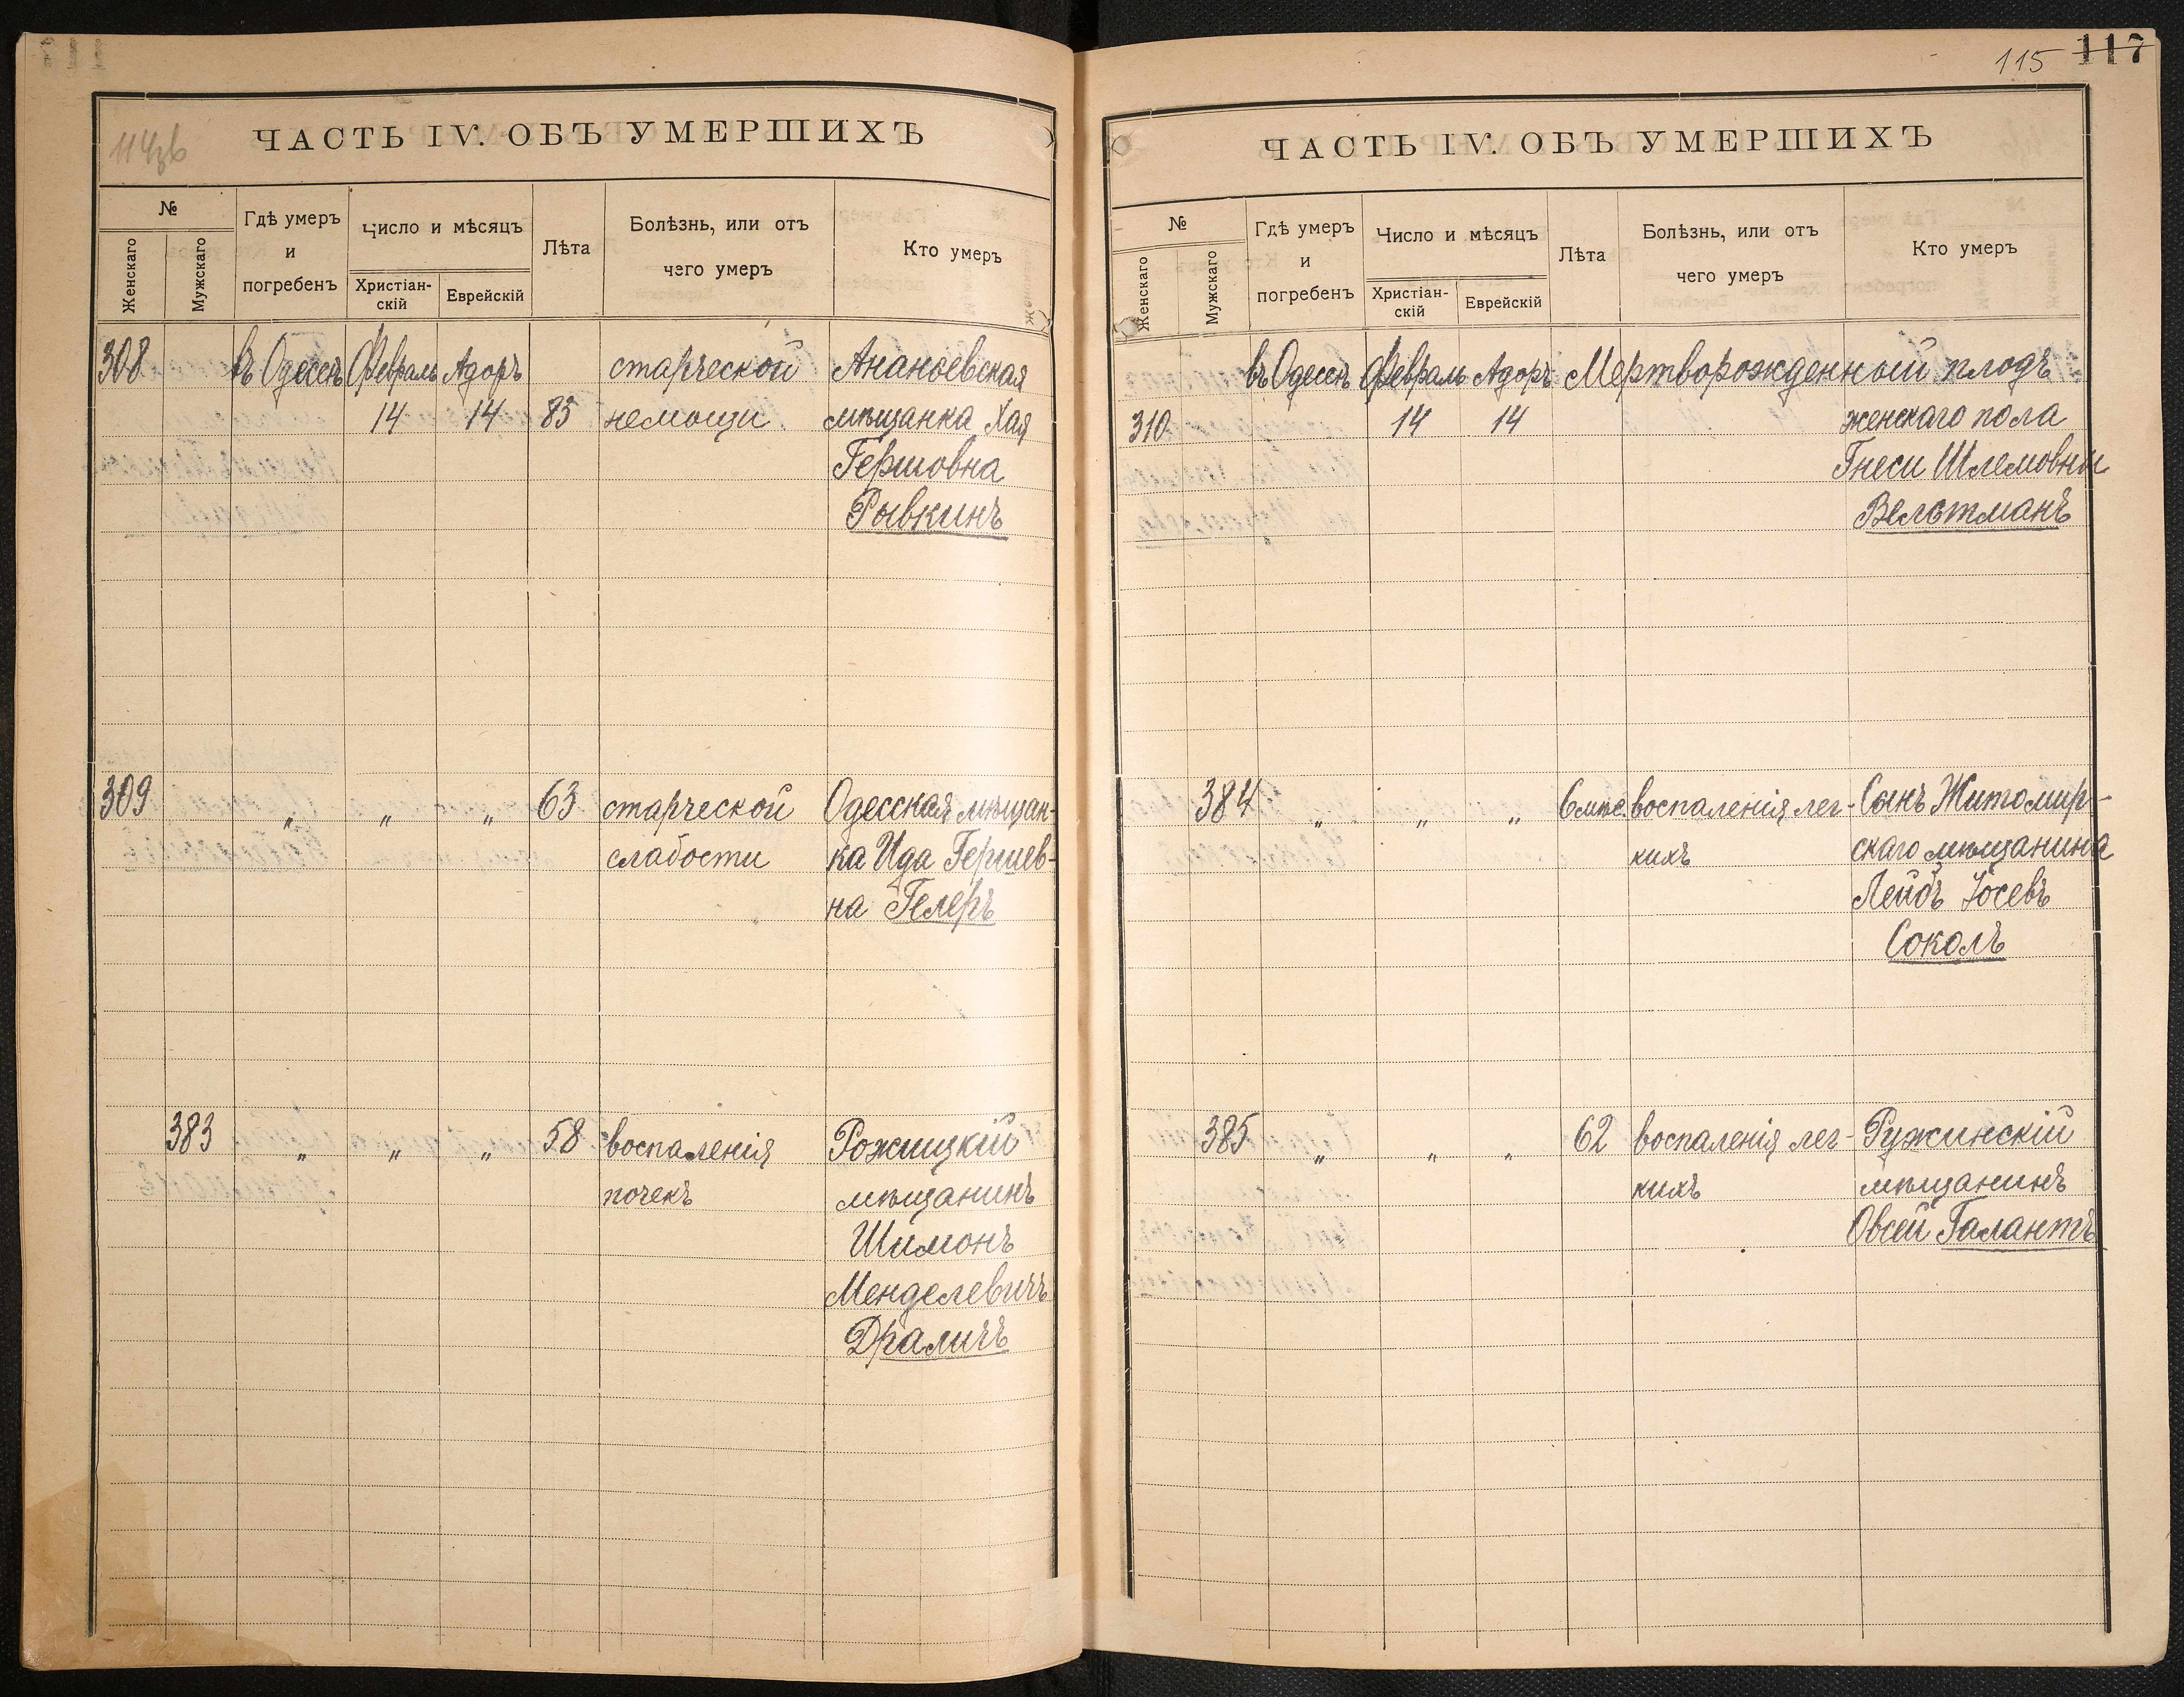 114зв
ЧАСТЬ IV. ОБЪ УМЕРШИХЪ
№
Женскаго
Мужскаго
Гдѣ умеръ
и
погребенъ
Число и мѣсяцъ
Христіан-
скій
Еврейскій
Лѣта
Болѣзнь, или отъ
чего умеръ
Кто умеръ
308 въ Одессѣ Февраль Адоръ старческой Ананьевская
14 14 83 немощи мѣщанка Хая
Гершовна
Рывкинъ
309 „ „ „ 63 старческой Одесская мѣщан-
слабости ка Ида Гершев-
на Гелеръ
383 „ „ „ 58 воспаленія Рожищкій
почекъ мѣщанинъ
Шимонъ
Менделевичъ
Драличъ
115 117
ЧАСТЬ IV. ОБЪ УМЕРШИХЪ
№
Женскаго
Мужскаго
Гдѣ умеръ
и
погребенъ
Число и мѣсяцъ
Христіан-
скій
Еврейскій
Лѣта
Болѣзнь, или отъ
чего умеръ
Кто умеръ
въ Одессѣ Февраль Адоръ Мертворожденный плодъ
310 14 14 женскаго пола
Гнеси Шлемовны
Вельтманъ
384 „ „ „ 6 мѣс. воспаленія лег- Сынъ Житомир-
кихъ скаго мѣщанина
Лейбъ Іосевъ
Соколъ
385 „ „ „ 62 воспаленія лег- Ружинскій
кихъ мѣщанинъ
Овсей Галантъ